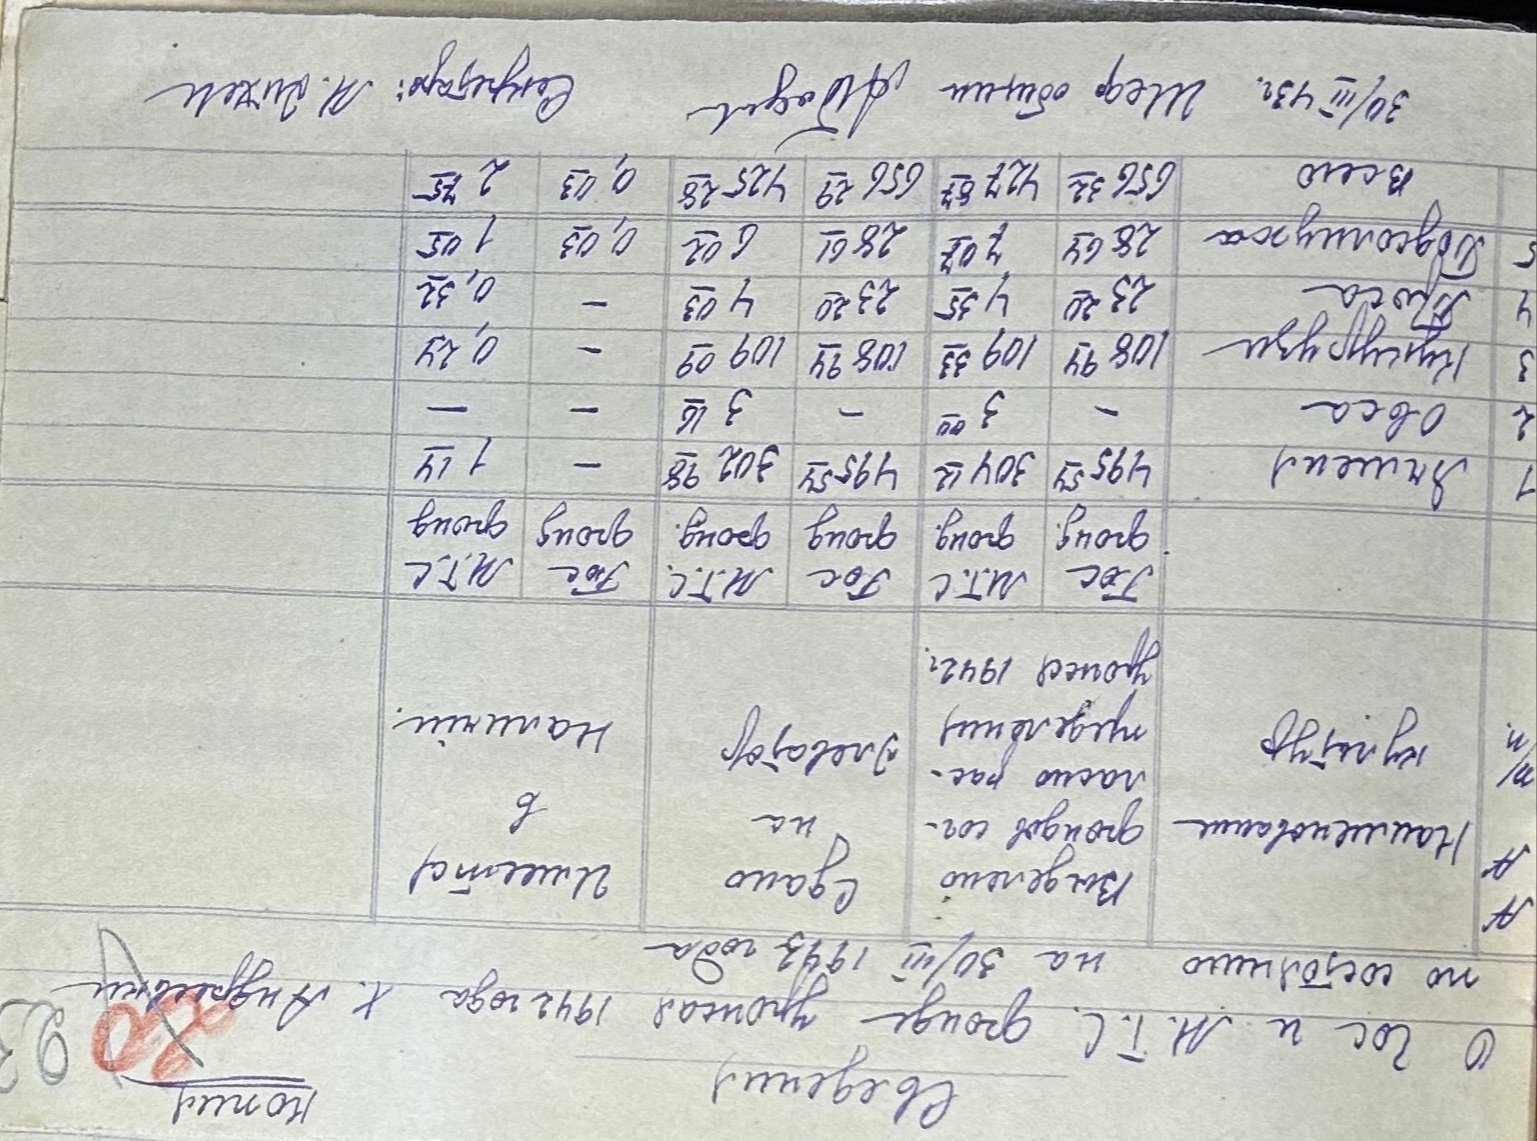 Копия
80 93
Сведения
о гос и М.Т.С. фонде урожая 1942 года х. Андреевки
по состоянию на 30/III 1943 года
№№ п/п | Наименование культур | Выделено фондов сог-ласно рас-пределения урожая 1942г. | Сдано на элеватор | Имеется в наличии.
Гос фонд. | М.Т.С фонд. | Гос фонд | М.Т.С. фонд. | Гос фонд | М.Т.С фонд
1 Ячменя 495 54 304 12 495 54 302 98 – 1 14
2 Овса – 3 00 – 3 16 – –
3 Кукурузы 108 94 109 33 108 94 109 09 – 0,24
4 Проса 23 20 4 35 23 20 4 03 – 0,32
5 Подсолнуха 28 64 7 07 28 61 6 02 0,03 1 05
Всего 656 32 427 87 656 29 425 28 0,03 2 75
30/III 43г. общины Секретарь: